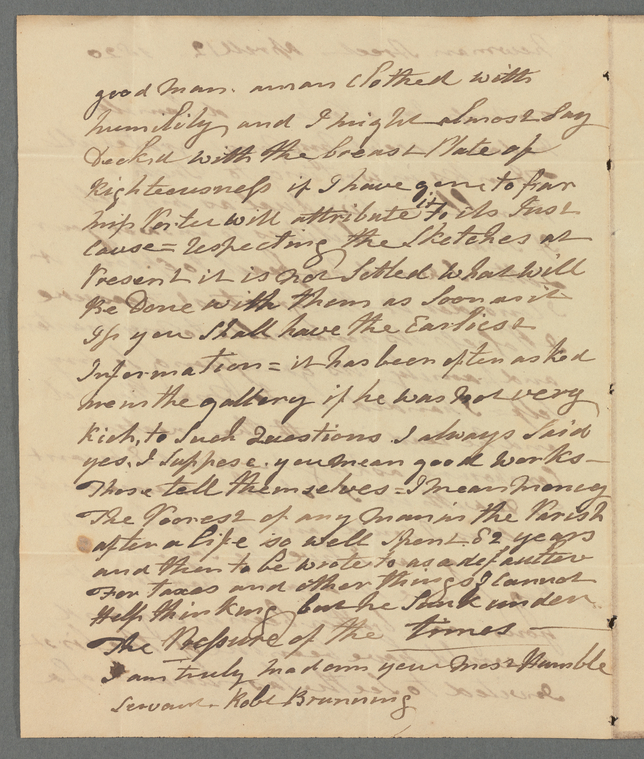 good man. a man Clothed with
humility, and I might almost Say
Deck,d with the breast Plate of
Righteousness if I have gone to far
his Vertue will attribute it to its Just
Cause = respecting the Sketches at
Present it is not Setled what will
Be Done with them as Soon as it
Is you Shall have the Earliest
Information = it has been often asked
me in the gallery if he was not very
Rich, to Such Questions I always Said
yes. I Suppose. you mean good works -
Those tell themselves = I mean money
The Poorest of any man in the Parish
after a life so well Spent. 82 years
and then to be wrote to as a defaulter
For taxes and other things I cannot
Help thinking but he Sunk under
The Pressure of the times -
I am truly madam your most Humble
Servant - Robt Brunning